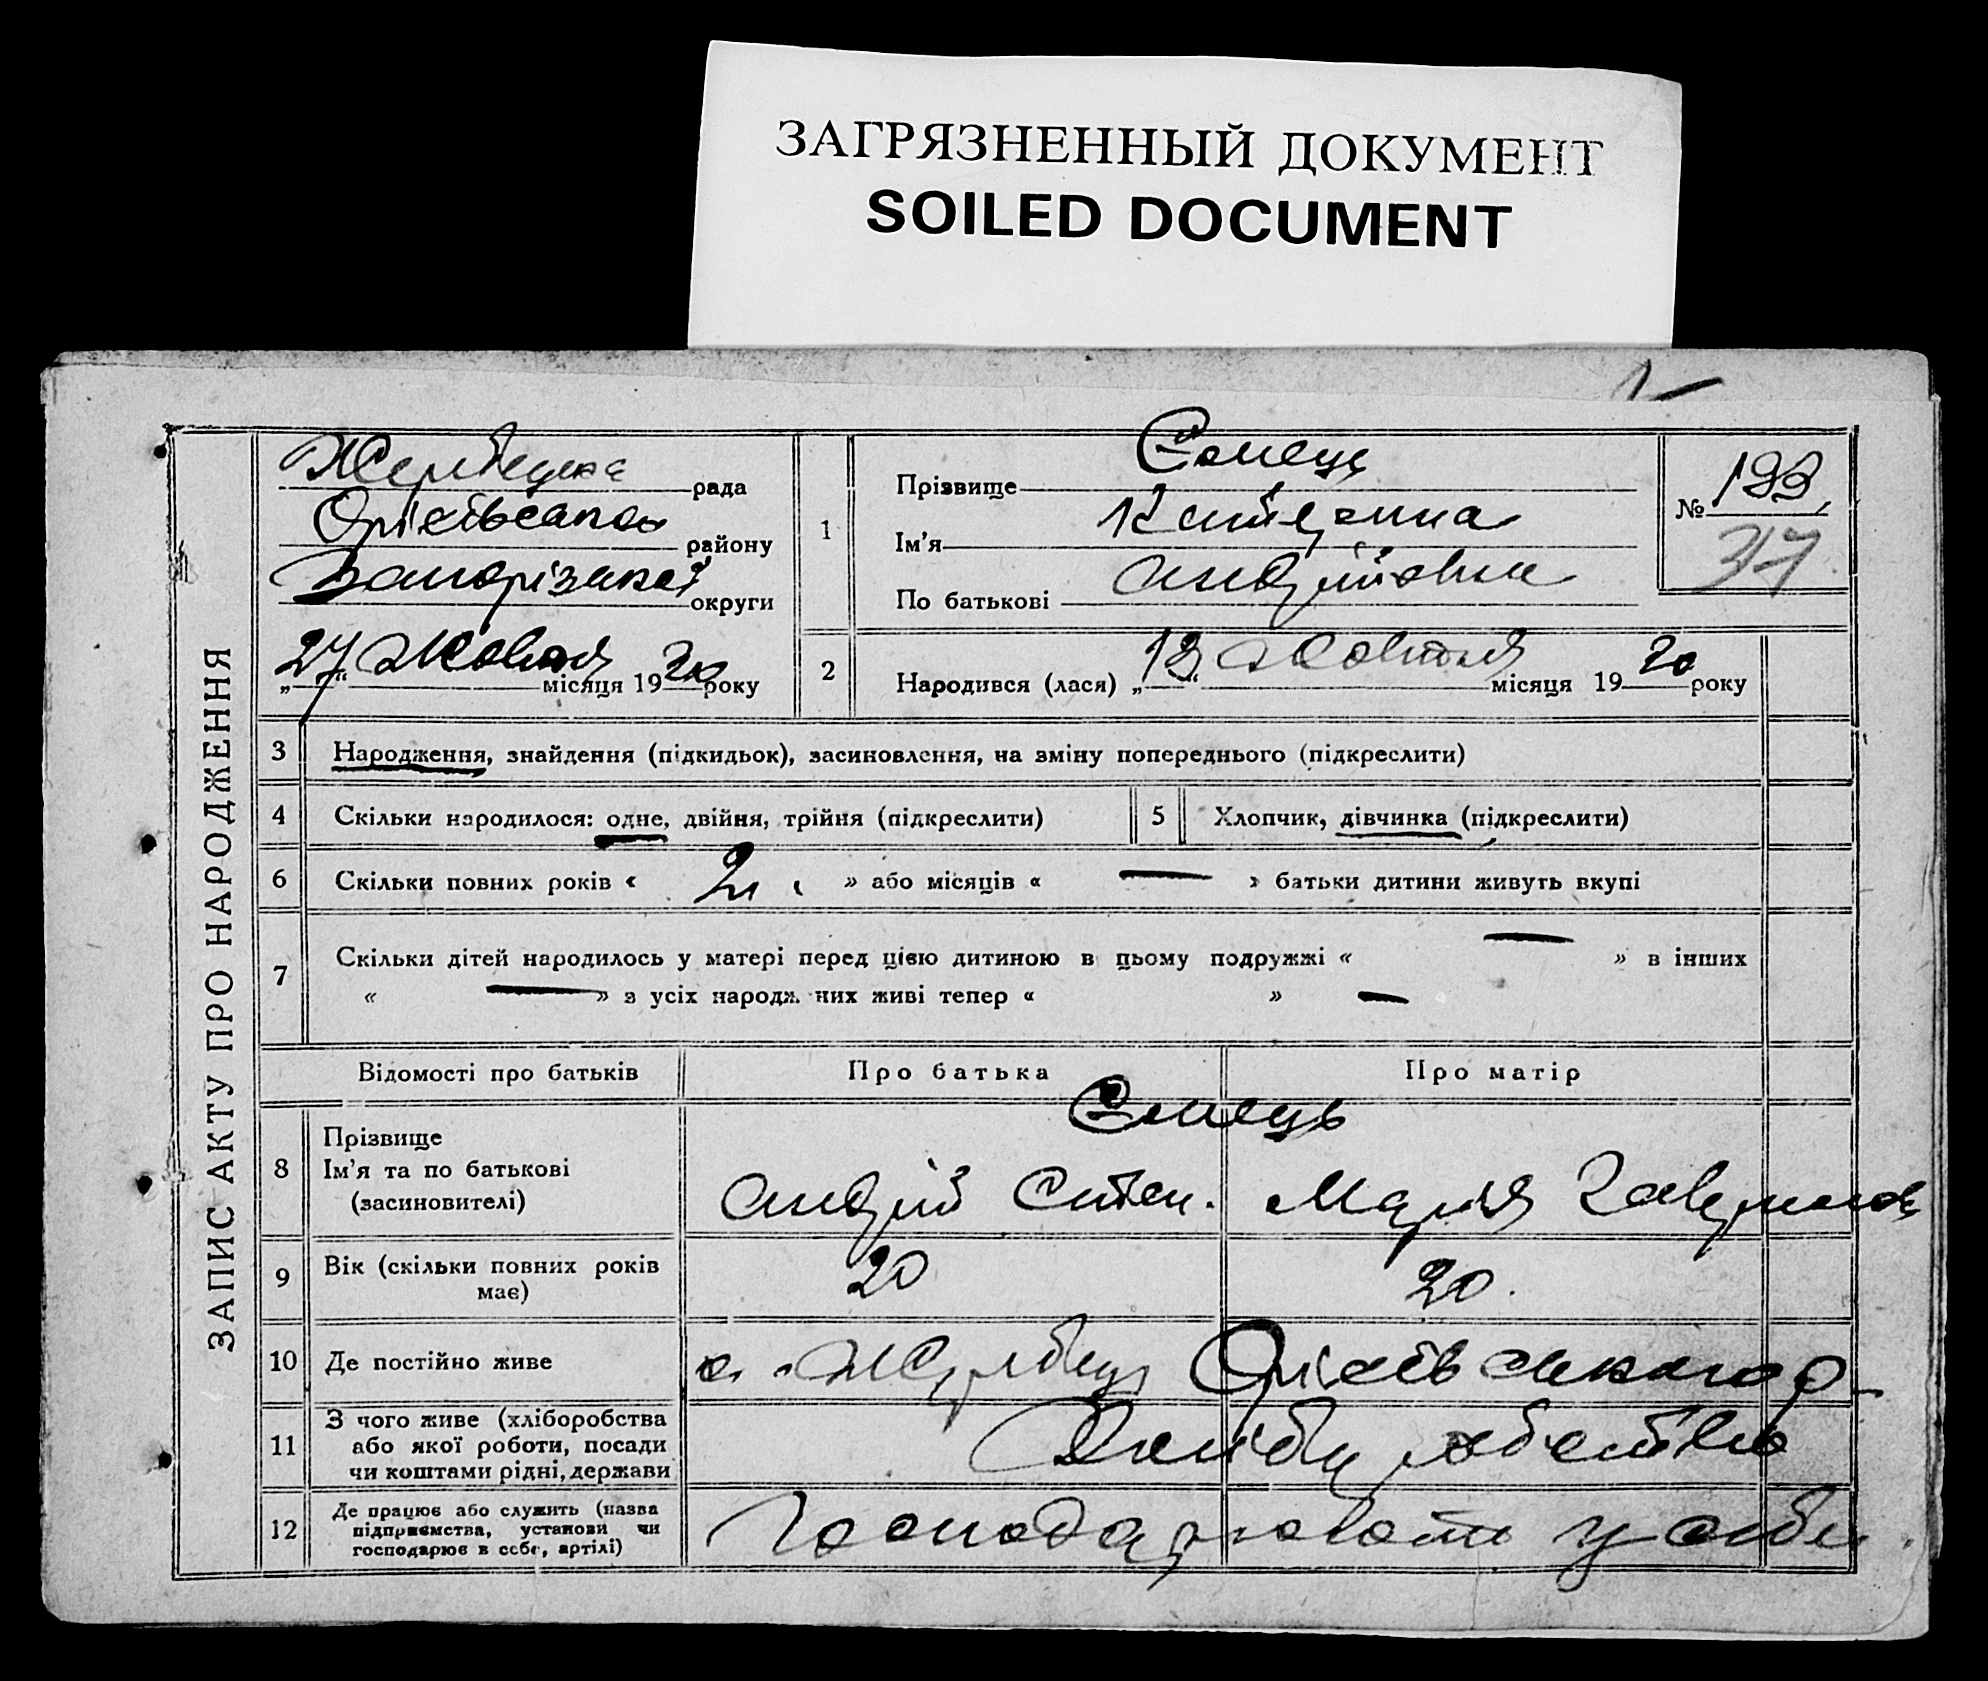 ЗАГРЯЗНЕННЫЙ ДОКУМЕНТ
SOILED DOCUMENT
ЗАПИС АКТУ ПРО НАРОДЖЕННЯ
Жеребецька рада
Оріхівського району
Запорізької округи
„27“ Жовтня місяця 19 року
1
Прізвище
Ім'я Катерина
По батькові Андріївна
№ 193
37
2
Народився (лася) „13“ Жовтня місяця 19 року
3 Народження, знайдення (підкидьок), засиновлення, на зміну попереднього (підкреслити)
4 Скільки народилося: одне, двійня, трійня (підкреслити)
5 Хлопчик, дівчинка (підкреслити)
6 Скільки повних років « 2 » або місяців « — » батьки дитини живуть вкупі
7 Скільки дітей народилось у матері перед цією дитиною в цьому подружжі « — » в інших
« — » з усіх народж них живі тепер « » —
Відомості про батьків
Про батька
Про матір
8
Прізвище
Ім'я та по батькові
(засиновителі)
Андрій Степ. Марія
9
Вік (скільки повних років
має)
20 20.
10 Де постійно живе
с. Жеребець Оріхівського р
11
З чого живе (хліборобства
або якої роботи, посади
чи коштами рідні, держави
Хліборобство
12
Де працює або служить (назва
підприємства, установи чи
господарює в себе, артілі)
Господарюють у себе.